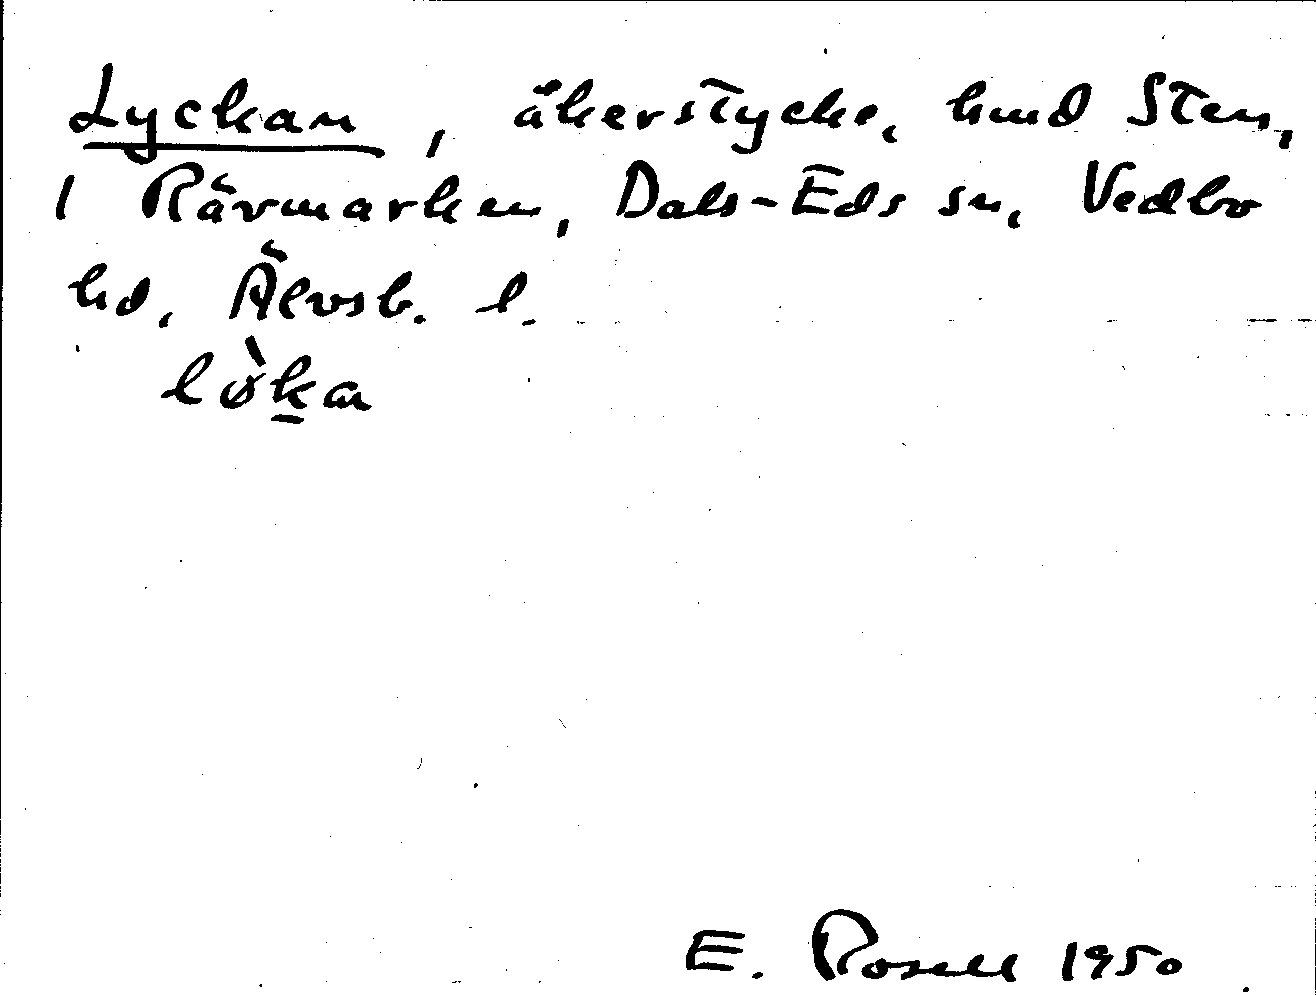 Lyckan, åkerstycke, hmd Sten,
1 Rävmarken, Dals-Eds sn, Vedbo
hd, Älvsb. l.
lø̀ḵa
E. Rosell 1950